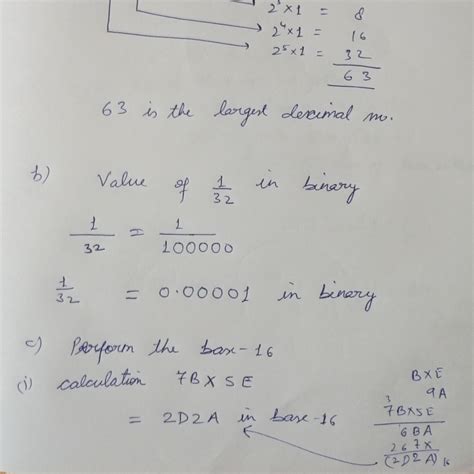 2³×1 = 8
2⁴×1 = 16
2⁵×1 = 32
63
63 is the largest decimal no.
b) Value of 1/32 in binary
1/32 = 1/100000
1/32 = 0.00001 in binary
c) Perform the base-16
(i) calculation 7B×5E
= 2D2A in base-16
B×E
9A
3
7B×5E
6BA
267×
(2D2A)₁₆